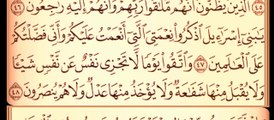 ٱلَّذِينَ يَظُنُّونَ أَنَّهُم مُّلَٰقُواْ رَبِّهِمْ وَأَنَّهُمْ إِلَيْهِ رَٰجِعُونَ ٤٦
يَٰبَنِىٓ إِسْرَٰٓءِيلَ ٱذْكُرُواْ نِعْمَتِىَ ٱلَّتِىٓ أَنْعَمْتُ عَلَيْكُمْ وَأَنِّى فَضَّلْتُكُمْ
عَلَى ٱلْعَٰلَمِينَ ٤٧ وَٱتَّقُواْ يَوْمًا لَّا تَجْزِى نَفْسٌ عَن نَّفْسٍ شَيْـًٔا
وَلَا يُقْبَلُ مِنْهَا شَفَٰعَةٌ وَلَا يُؤْخَذُ مِنْهَا عَدْلٌ وَلَا هُمْ يُنصَرُونَ ٤٨